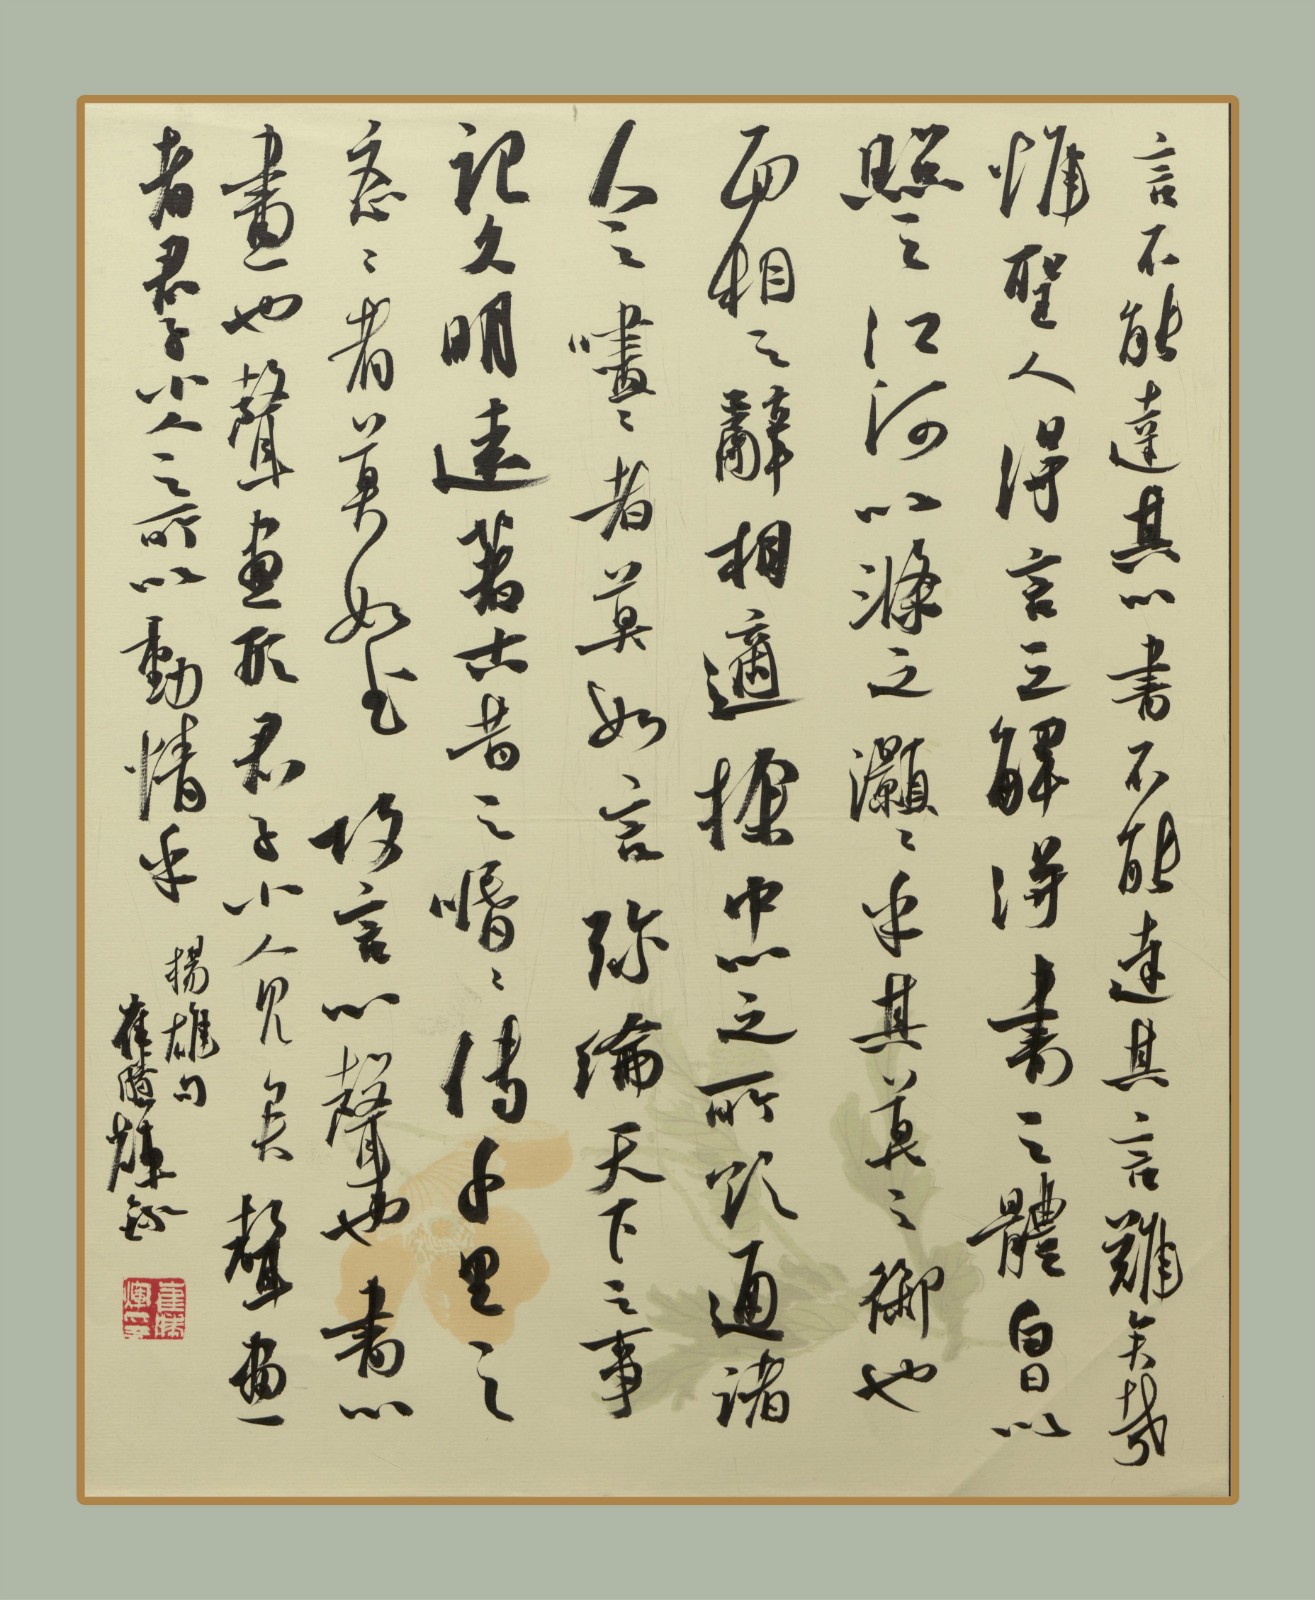 言不能達其心書不能達其言難矣哉
惟聖人得言之解得書之體白日以
照之江河以滌之灝〻乎其莫之御也
面相之辭相適捈中心之所欲通諸
人之嚍〻者莫如言弥綸天下之事
記久明遠著古昔之㖧〻傳千里之
忞〻者莫如書 故言心聲也書心
畫也聲畫形君子小人見矣聲畫
者君子小人之所以動情乎
楊雄句
崔勝輝錄